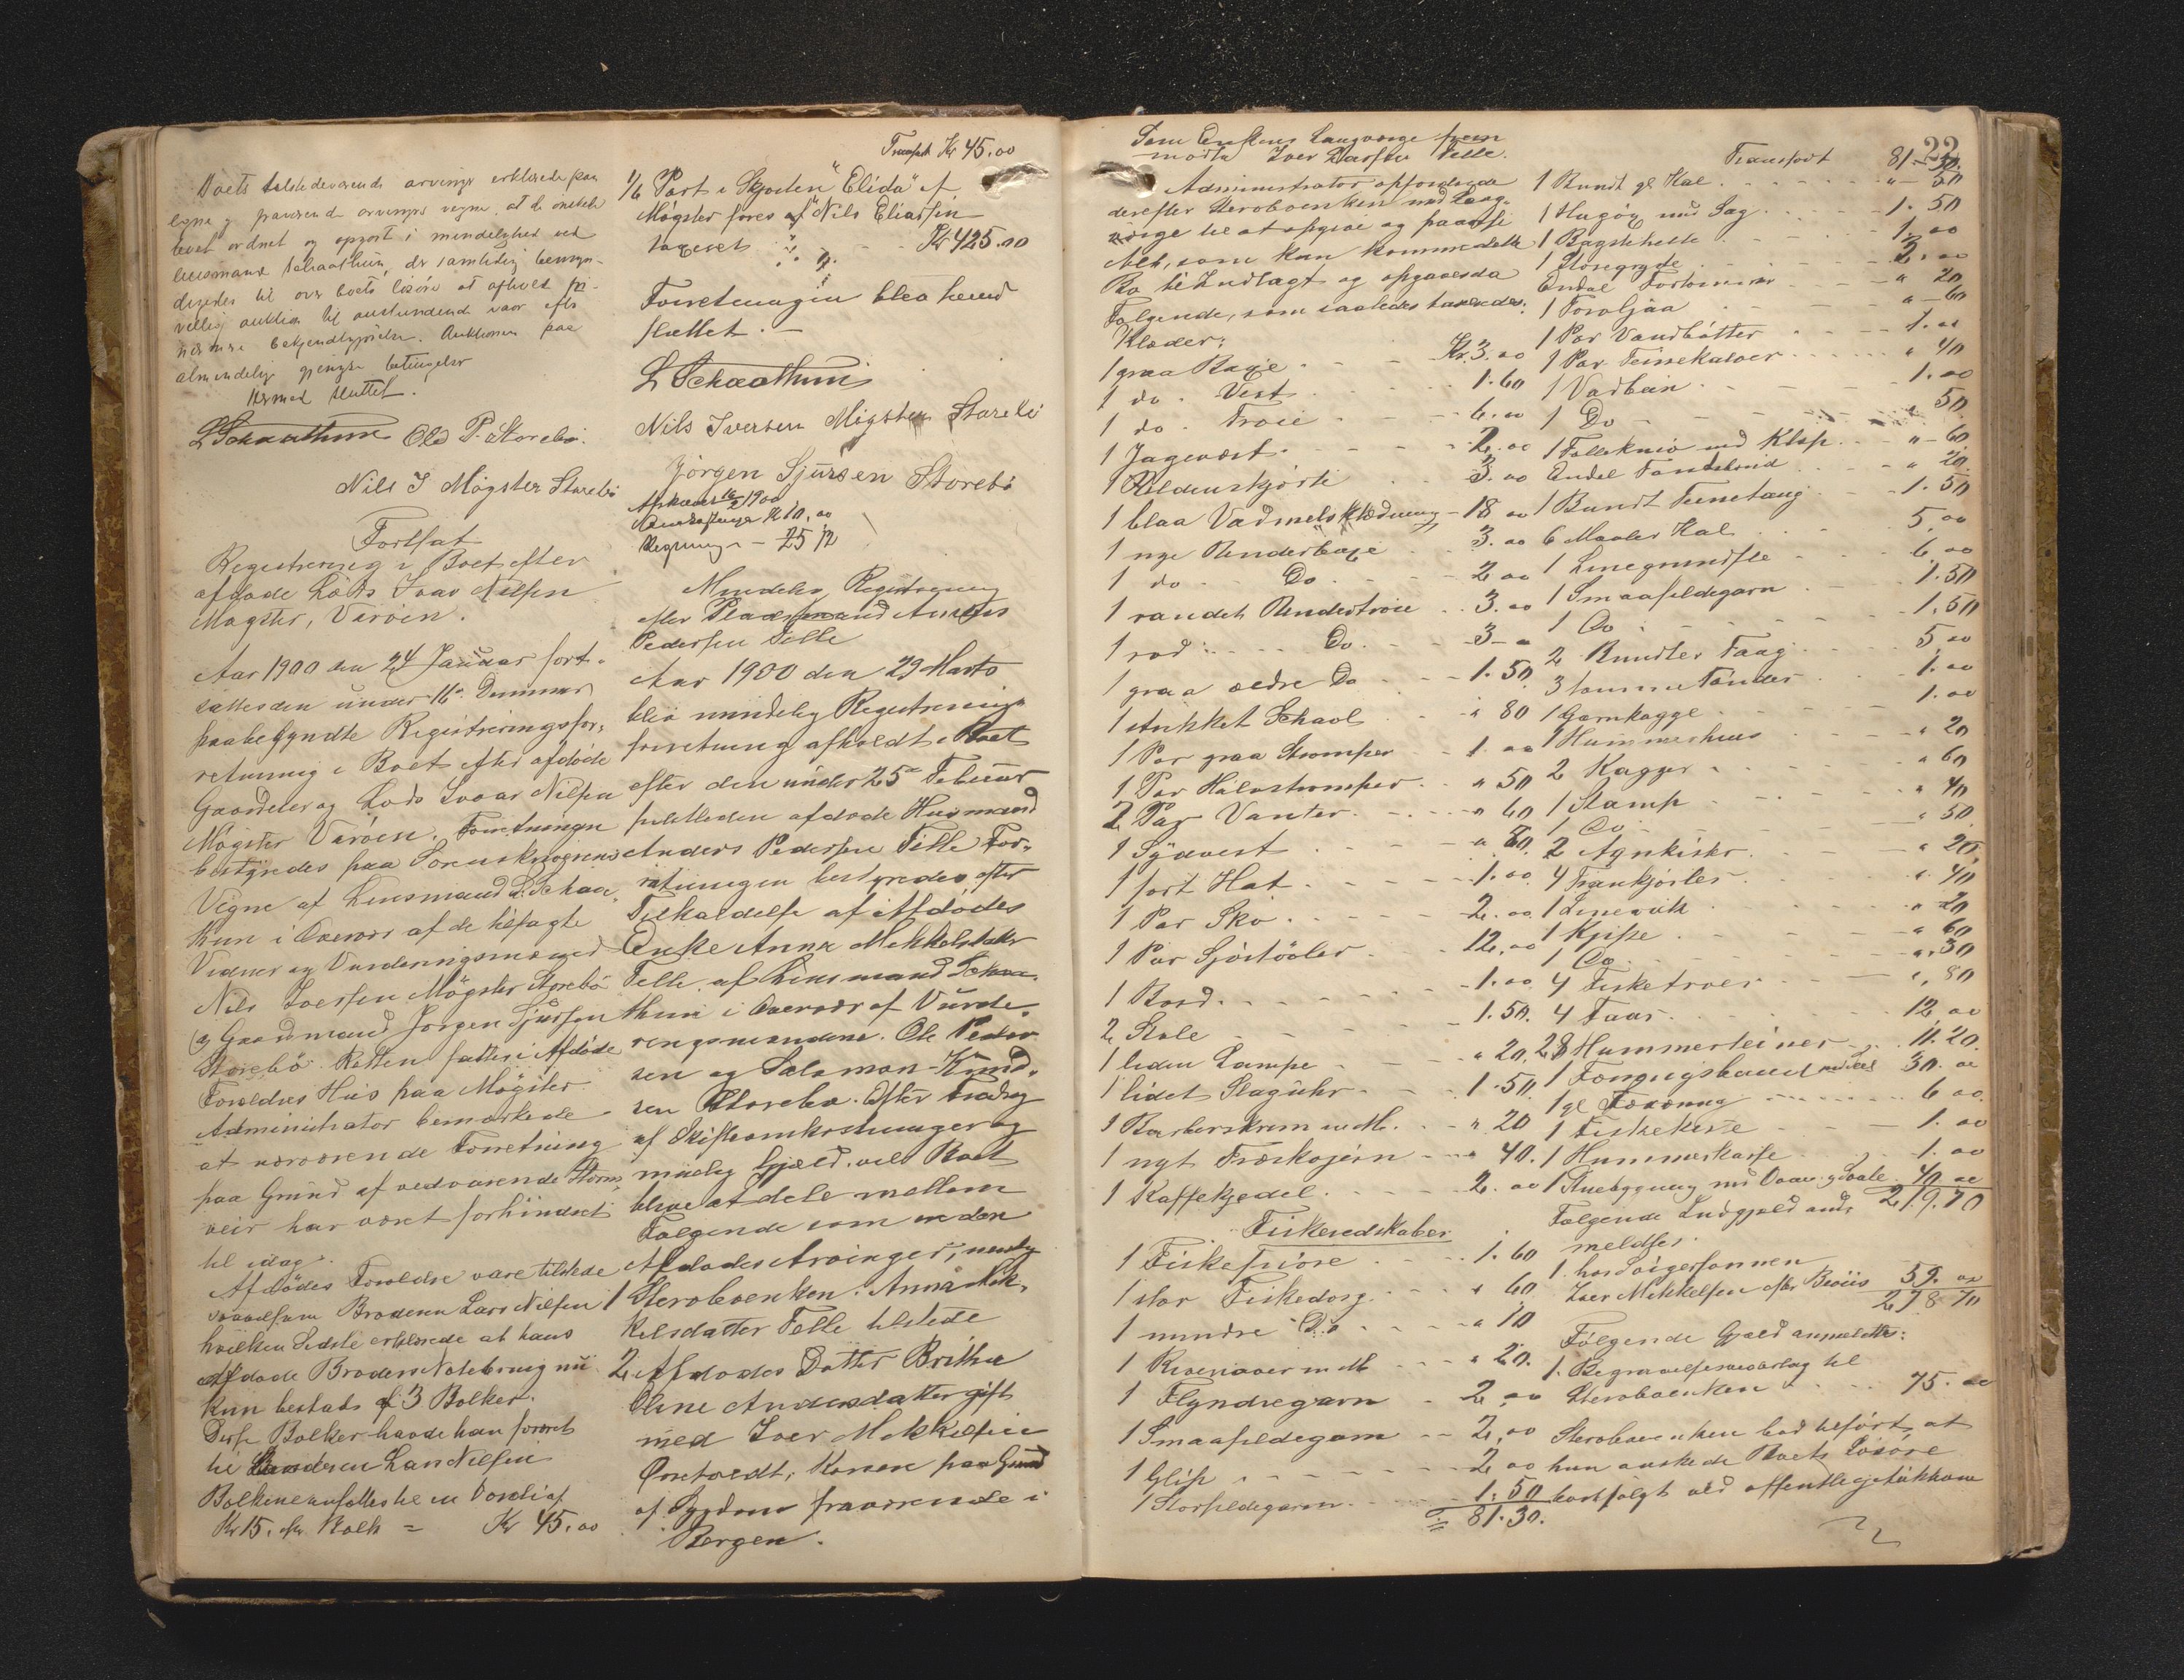 Boets tilstedeværende arvinger erklærede paa
egne og fraværende arvingers vegne, at de ønskede
boet ordnet og opgjort i mindelighed ved
lensmand Schaathun, der samtidig bemyn-
digedes til over boets løsøre at afholde fri-
villig auktion til anstundende vaar efter
nærmere bekjendtgjørelse. Auktionen paa
almindelige gjængse betingelser
Hermed sluttet.
L Schaathun Ole P. Storebø.
Nils I Møgster Storebø
Fortsat
Registrering i Boet efter
afdøde Lods Ivar Nilsen
Møgster, Værøen.
Aar 1900 den 24 Januar fort-
sattes den under 16de Desember
paabegyndte Registreringsfor-
retning i Boet efter afdøde
Gaardeier og Lods Ivar Nilsen
Møgster Værøen. Forretningen
bestyredes paa Sorenskriverens
Vegne af Lensmand L. Schaa-
thun i Overvær af de tilsagte
Vidner og Vurderingsmænd
Nils Iversen Møgster Storebø
og Gaardmand Jørgen Sjursen
Storebø. Retten sattes i Afdøde
Forældres Hus paa Møgster
Administrator bemærkede
at nærværende Forretning
paa Grund af vedvarende Storm
veir har været forhindret
til idag.
Afdødes Forældre vare tilstede
saavelsom Broderen Lars Nilsen
hvilken Sidste erklærede at hans
afdøde Broders Notebrug nu
kun bestaar af 3 Bolker.
Disse Bolker havde han foræret
til Broderen Lars Nilsen
Bolkene ansattes til en Værdi af
Kr 15. pr. Bolk = Kr 45.00
Transport Kr 45.00
1/6 Part i Skøiten "Elida" af
Møgster føres af Nils Eliassen
taxeret Kr 425.00
Forretningen blev hermed
sluttet.-
L Schaathun
Nils Iversen Møgster Storebø
Jørgen Sjursen Storebø
Afskrevet 16/2 1900
Omkostninger Kr 10,00
Regning - 25 12
Mindelig Registrering
efter Pladsmand Anders
Pedersen Telle
Aar 1900 den 29 Marts
blev mindelig Registrerings
forretning afholdt i Boet
efter den under 25de Februar
sidstleden afdøde Husmand
Anders Pedersen Telle For-
retningen bestyredes efter
Tilkaldelse af Afdødes
Enke Anna Mikkelsdatter
Telle af Lensmand Schaa-
thun i Overvær af Vurde-
ringsmændene. Ole Peder
sen og Salamon Knud-
sen Storebø. Efter Fradrag
af Skifteomkostninger og
mulig Gjæld vil Boet
blive at dele mellem
Følgende som er den
Afdødes Arvinger, nemlig
1 Sterboenken. Anna Mik-
kelsdatter Telle tilstede
2. Afdødes Datter Britha
Oline Andersdatter gift
med Iver Mikkelsen
Konen paa Grund
af Sygdom fraværende i
Bergen.
22
Som Enkens Laugværge frem
mødte Iver Larsen Telle.
Administrator opfordrede
derefter Sterboenken med Laug-
værge til at opgive og paavise
Alt, som kan komme dette
Bo til Indtægt og opgaves da
Følgende, som saaledes taxeredes:
Klæder:
1 graa Buxe - - Kr. 3.00
1 do. Vest - 1.60
1 do. Trøie - - 6.00
1 Jagevest - - - 2.00
1 skjørte - 3.00
1 blaa Vadmelsklædning - 18 00
1 nye Underbuxe - 3.00
1 do. Do. - - 2 00
1 randet Undertrøie - - 3.00
1 rød Do. - - 3 - "
1 graa ældre Do - - 1.50
1 strikket Schaol - " 80
1 Par graa Strømper - 1.00
1 Par Halvstrømper - - " 50
2 Par Vanter - - - " 60
1 Sydvest - - - - " 80
1 sort Hat - - - 1.00
1 Par Sko - - - - 2.00
1 Par Sjøstøvler - - 12,00
1 Bord - - - - - 1.00
2 Stole - - - 1.50
1 liden Lampe - - " 20
1 lidet Slaguhr - - 1.50
1 Barberskrin m M. - - " 20
1 nyt - - " 40
1 Kaffekjedel - - - 2.00
Fiskeredskaber
1 Fiskesnøre - - 1.60
1 stor Fiskedorg - - " 60
1 mindre Do - - - " 10
1 m M - - - " 20
1 Flyndregarn - 2,00
1 Smaasildegarn - - 2,00
1 Glip - - - - - 2 00
1 Storsildegarn - - 1.50
= 81.30.
Transport 81-30
1 Bundt gl Kal - - - - " - 50
1 med Sag - - - 1.50
1 Bagstehelle - - - 1.00
1 Storegryde - - - 2.00
Endel - - " 20
1 - - - " - 60
1 Par Vandbøtter - - 1.00
1 Par - - - " 40
1 Vadbein - - - - 1.00
1 Do - - - - " 50
1 med Klap - - " - 60
Endel - - " 20
1 Bundt Teinetaug - - 1.50
6 Maaler Kal - - 5,00
1 - - - 6.00
1 Smaasildegarn - - 1.50
1 Do - - - - 1.50
2 Bundter Taag - - - 5,00
3 tomme Tønder - - 1.00
1 Garnkagge - - - 1.00
1 Hummerhus - - - " 20
2 Kagger - - - - " 60
1 Stamp - - - - " 40
1 Do - - - - " 50
2 Agnkister - - " 20
4 - - - " 40
1 - - - " 20
1 Kjipe - - - " 60
1 Do - - - - " 30
4 - - " 80
4 Faar - - - 12,00
28 Hummerteiner - - 11.20
1 30.00
1 gl Færæring - - - 6 00
1 Fiskekiste - - 1.00
1 Hummerkasse - - 1.00
1 40 00
219.70
Følgende Indgjæld an-
meldtes:
1. hos Svigersønnen
Iver Mikkelsen efter Bevis 59.00
278 70
Følgende Gjæld anmeldtes:
1. til
Sterboenken - - - 75.00
Sterboenken bad tilført, at
hun ønskede Boets Løsøre
bortsolgt ved offentlig Auktion